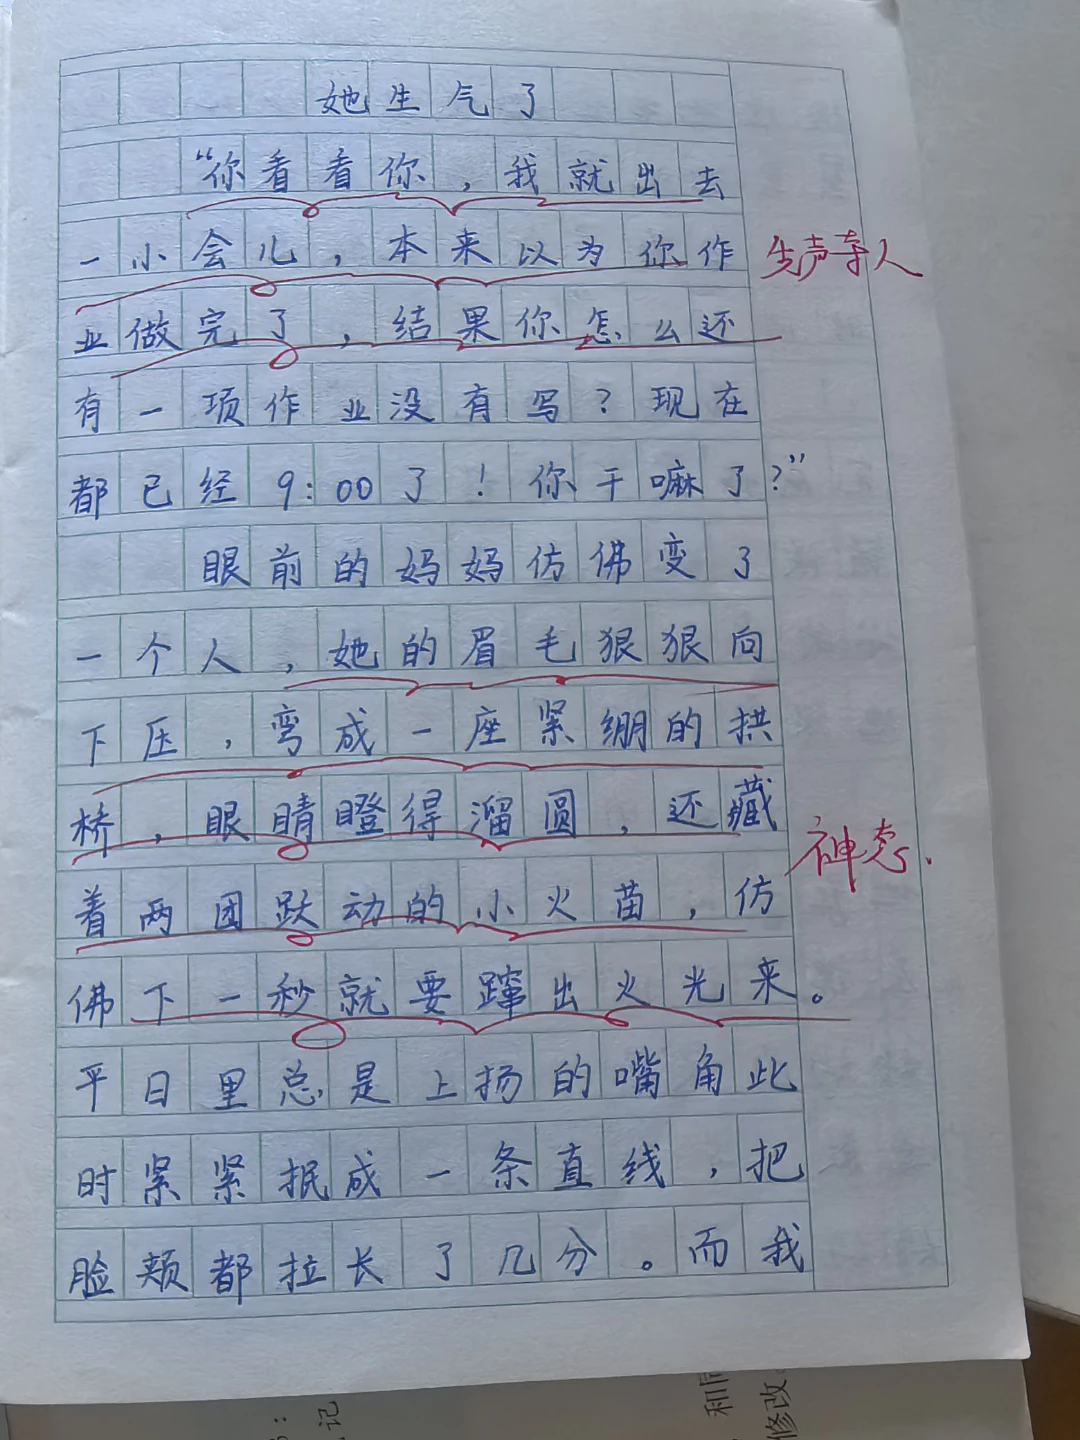 她生气了
“你看看你，我就出去
一小会儿，本来以为你作
先声夺人
业做完了，结果你怎么还
有一项作业没有写？现在
都已经9:00了！你干嘛了？”
眼前的妈妈仿佛变了
一个人，她的眉毛狠狠向
下压，弯成一座紧绷的拱
桥，眼睛瞪得溜圆，还藏
神态.
着两团跃动的小火苗，仿
佛下一秒就要蹿出火光来。
平日里总是上扬的嘴角此
时紧紧抿成一条直线，把
脸颊都拉长了几分。而我
记
和同
修改